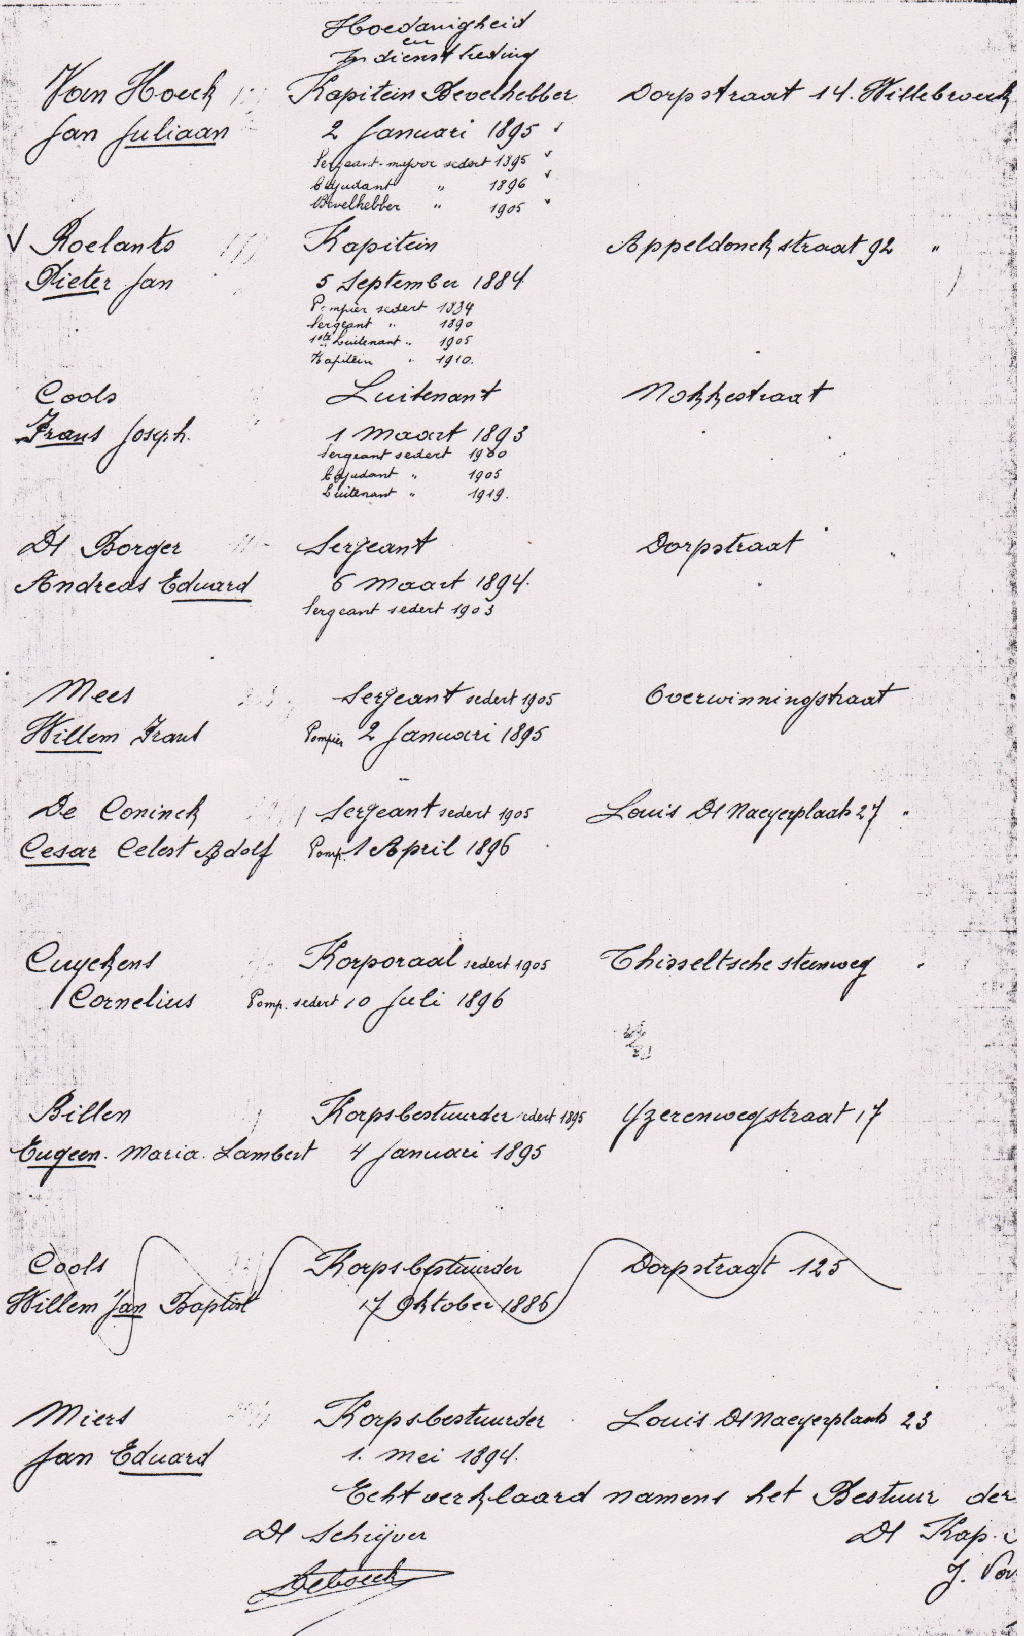 Hoedanigheid
en
In diensttreding
Van Hoeck Kapitein Bevelhebber Dorpstraat 14. Willebroeck
Jan Juliaan 2 Januari 1895
Sergeant-majoor sedert 1895
Adjudant " 1896
Bevelhebber " 1905
V Roelants Kapitein Appeldonckstraat 92 "
Pieter Jan 5 September 1884
Pompier sedert 1884
Sergeant " 1890
1ste Luitenant " 1905
Kapitein " 1910.
Cools Luitenant Mokkestraat
Frans Joseph. 1 Maart 1893
Sergeant sedert 1900
Adjudant " 1905
Luitenant " 1919.
De Borger Sergeant Dorpstraat
Andreas Eduard 6 Maart 1894.
Sergeant sedert 1903
Mees Sergeant sedert 1905 Overwinningstraat
Willem Frans Pompier 2 Januari 1895
De Coninck Sergeant sedert 1905 Louis De Naeyerplaats 27 "
Cesar Celest Adolf Pomp. 1 April 1896
Cuyckens Korporaal sedert 1905 Thisseltsche steenweg "
Cornelius Pomp. sedert 10 Juli 1896
Billen Korpsbestuurder sedert 1895 Yzerenwegstraat 17
Eugeen. Maria. Lambert 4 Januari 1895
Cools Korpsbestuurder Dorpstraat 125
Willem Jan Baptist 17 Oktober 1886
Miers Korpsbestuurder Louis De Naeyerplaats 23
Jan Eduard 1. Mei 1894.
Echt verklaard namens het Bestuur der
De Schrijver De Kap.
Deboeck J. Van